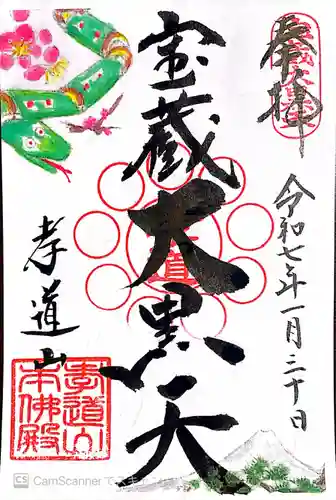 奉拝
令和七年一月三十日
宝蔵大黒天
孝道山
孝道山
本佛殿
CS CamScanner で